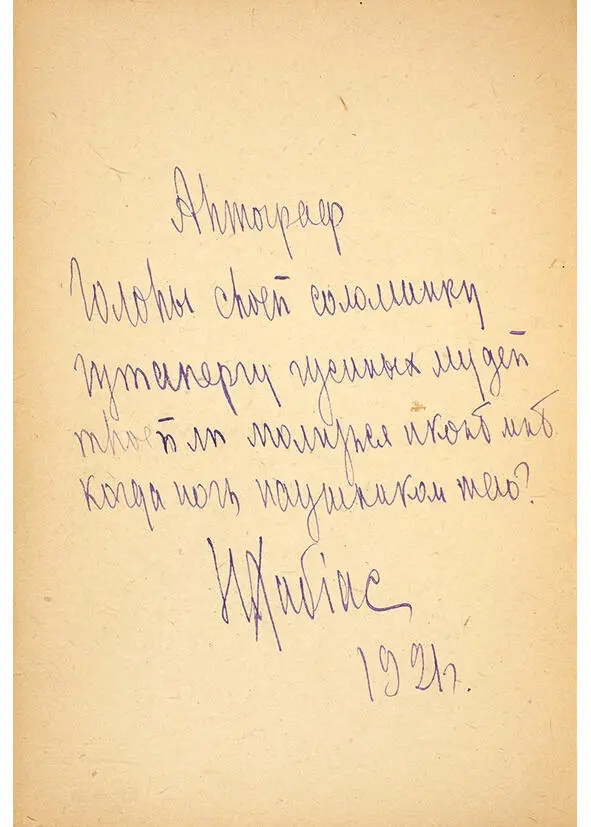 Автограф
Головы своей соломинку
гутаперчу гусиных мудей
твоей ли молиться иконѣ мнѣ
когда ночь паутинком тело?
Н Хабіас
1921г.